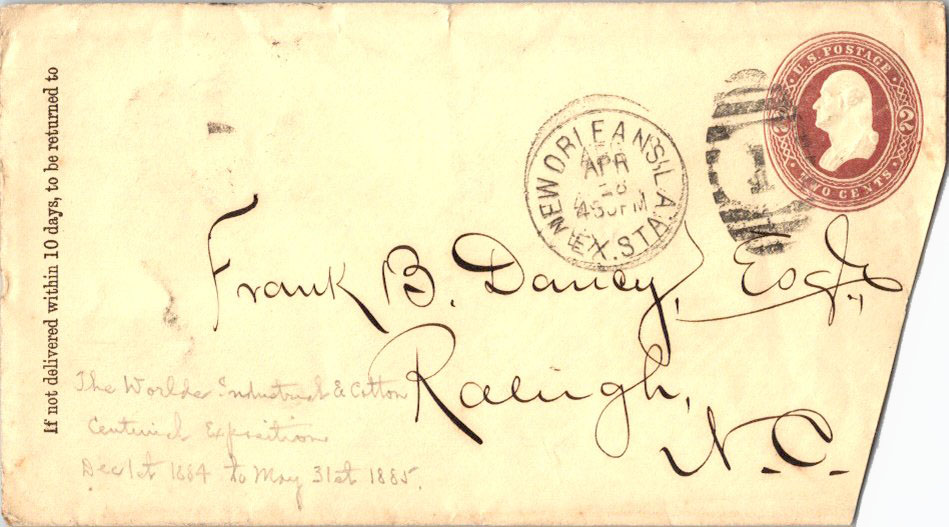 If not delivered within 10 days, to be returned to
U.S. POSTAGE
2
TWO CENTS
NEW ORLEANS, LA.
APR
28
430PM
EX. STA.
1
Frank B. Dancy, Esqr.,
Raleigh,
N.C.
The Worlds Industrial & Cotton
Centinial Exposition
Dec 1st 1884 to May 31st 1885.